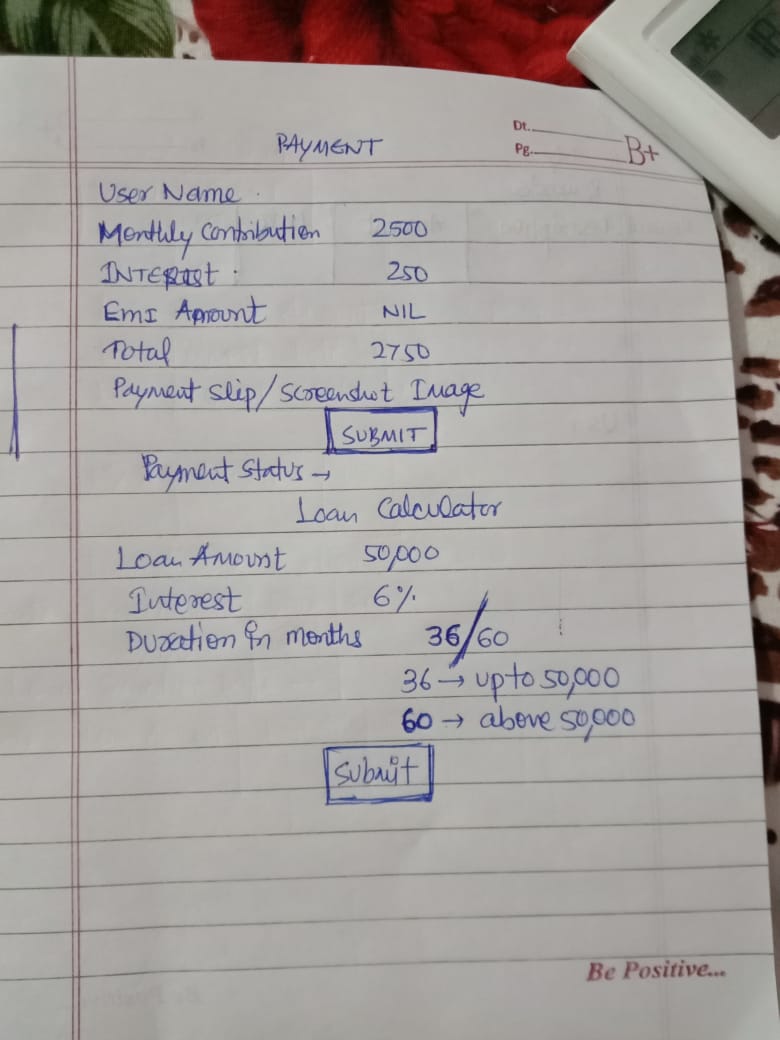 Dt.
PAYMENT
Pg.
B+
User Name
Monthly Contribution 2500
INTEREST 250
EMI Amount NIL
Total 2750
Payment Slip/Screenshot Image
SUBMIT
Payment Status →
Loan Calculator
Loan Amount 50,000
Interest 6%
Duration in months 36/60
36 → upto 50,000
60 → above 50,000
Submit
Be Positive...